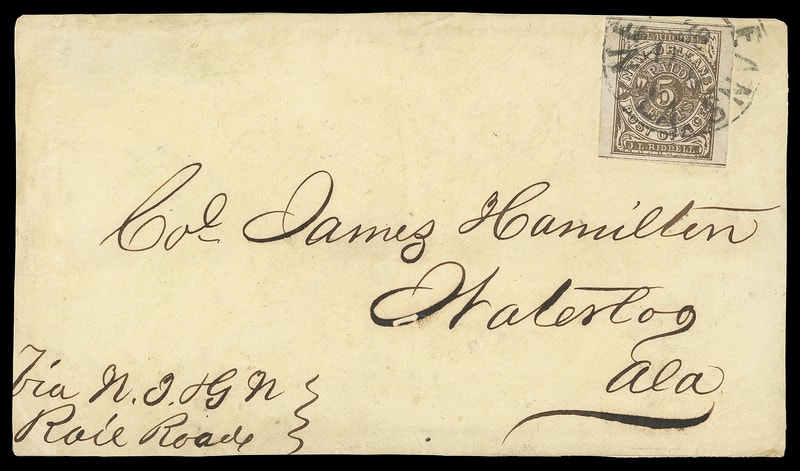 J.L. RIDDELL
NEW ORLEANS
PAID
5
CENTS
POST OFFICE
J.L. RIDDELL
Col James Hamilton
Waterloo
Ala
Via N.J. & G N
Rail Road